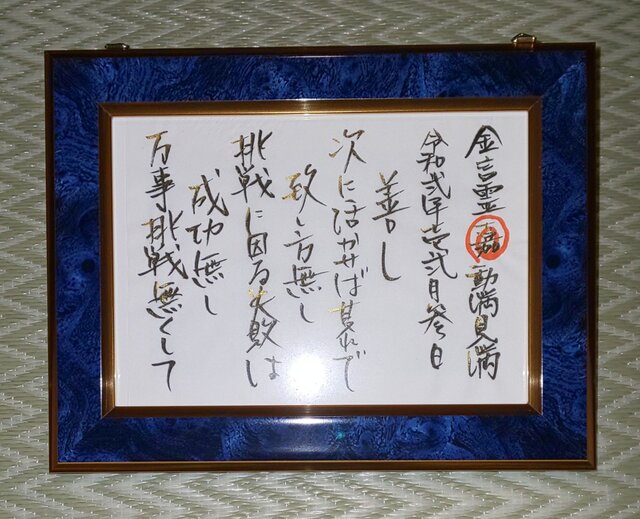 万事挑戦無くして
成功無し
挑戦に因る失敗は
致し方無し
次に活かせば其れで
善し
令和弐年壱弐月参日
金言霊 満見満